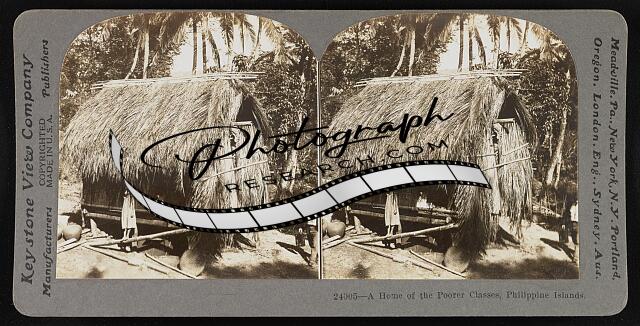 Keystone View Company
Manufacturers Publishers
COPYRIGHTED
MADE IN U.S.A.
Photograph
RESEARCH.COM
Meadville, Pa., New York, N.Y. Portland,
Oregon. London, Eng., Sydney, Aus.
24005—A Home of the Poorer Classes, Philippine Islands.